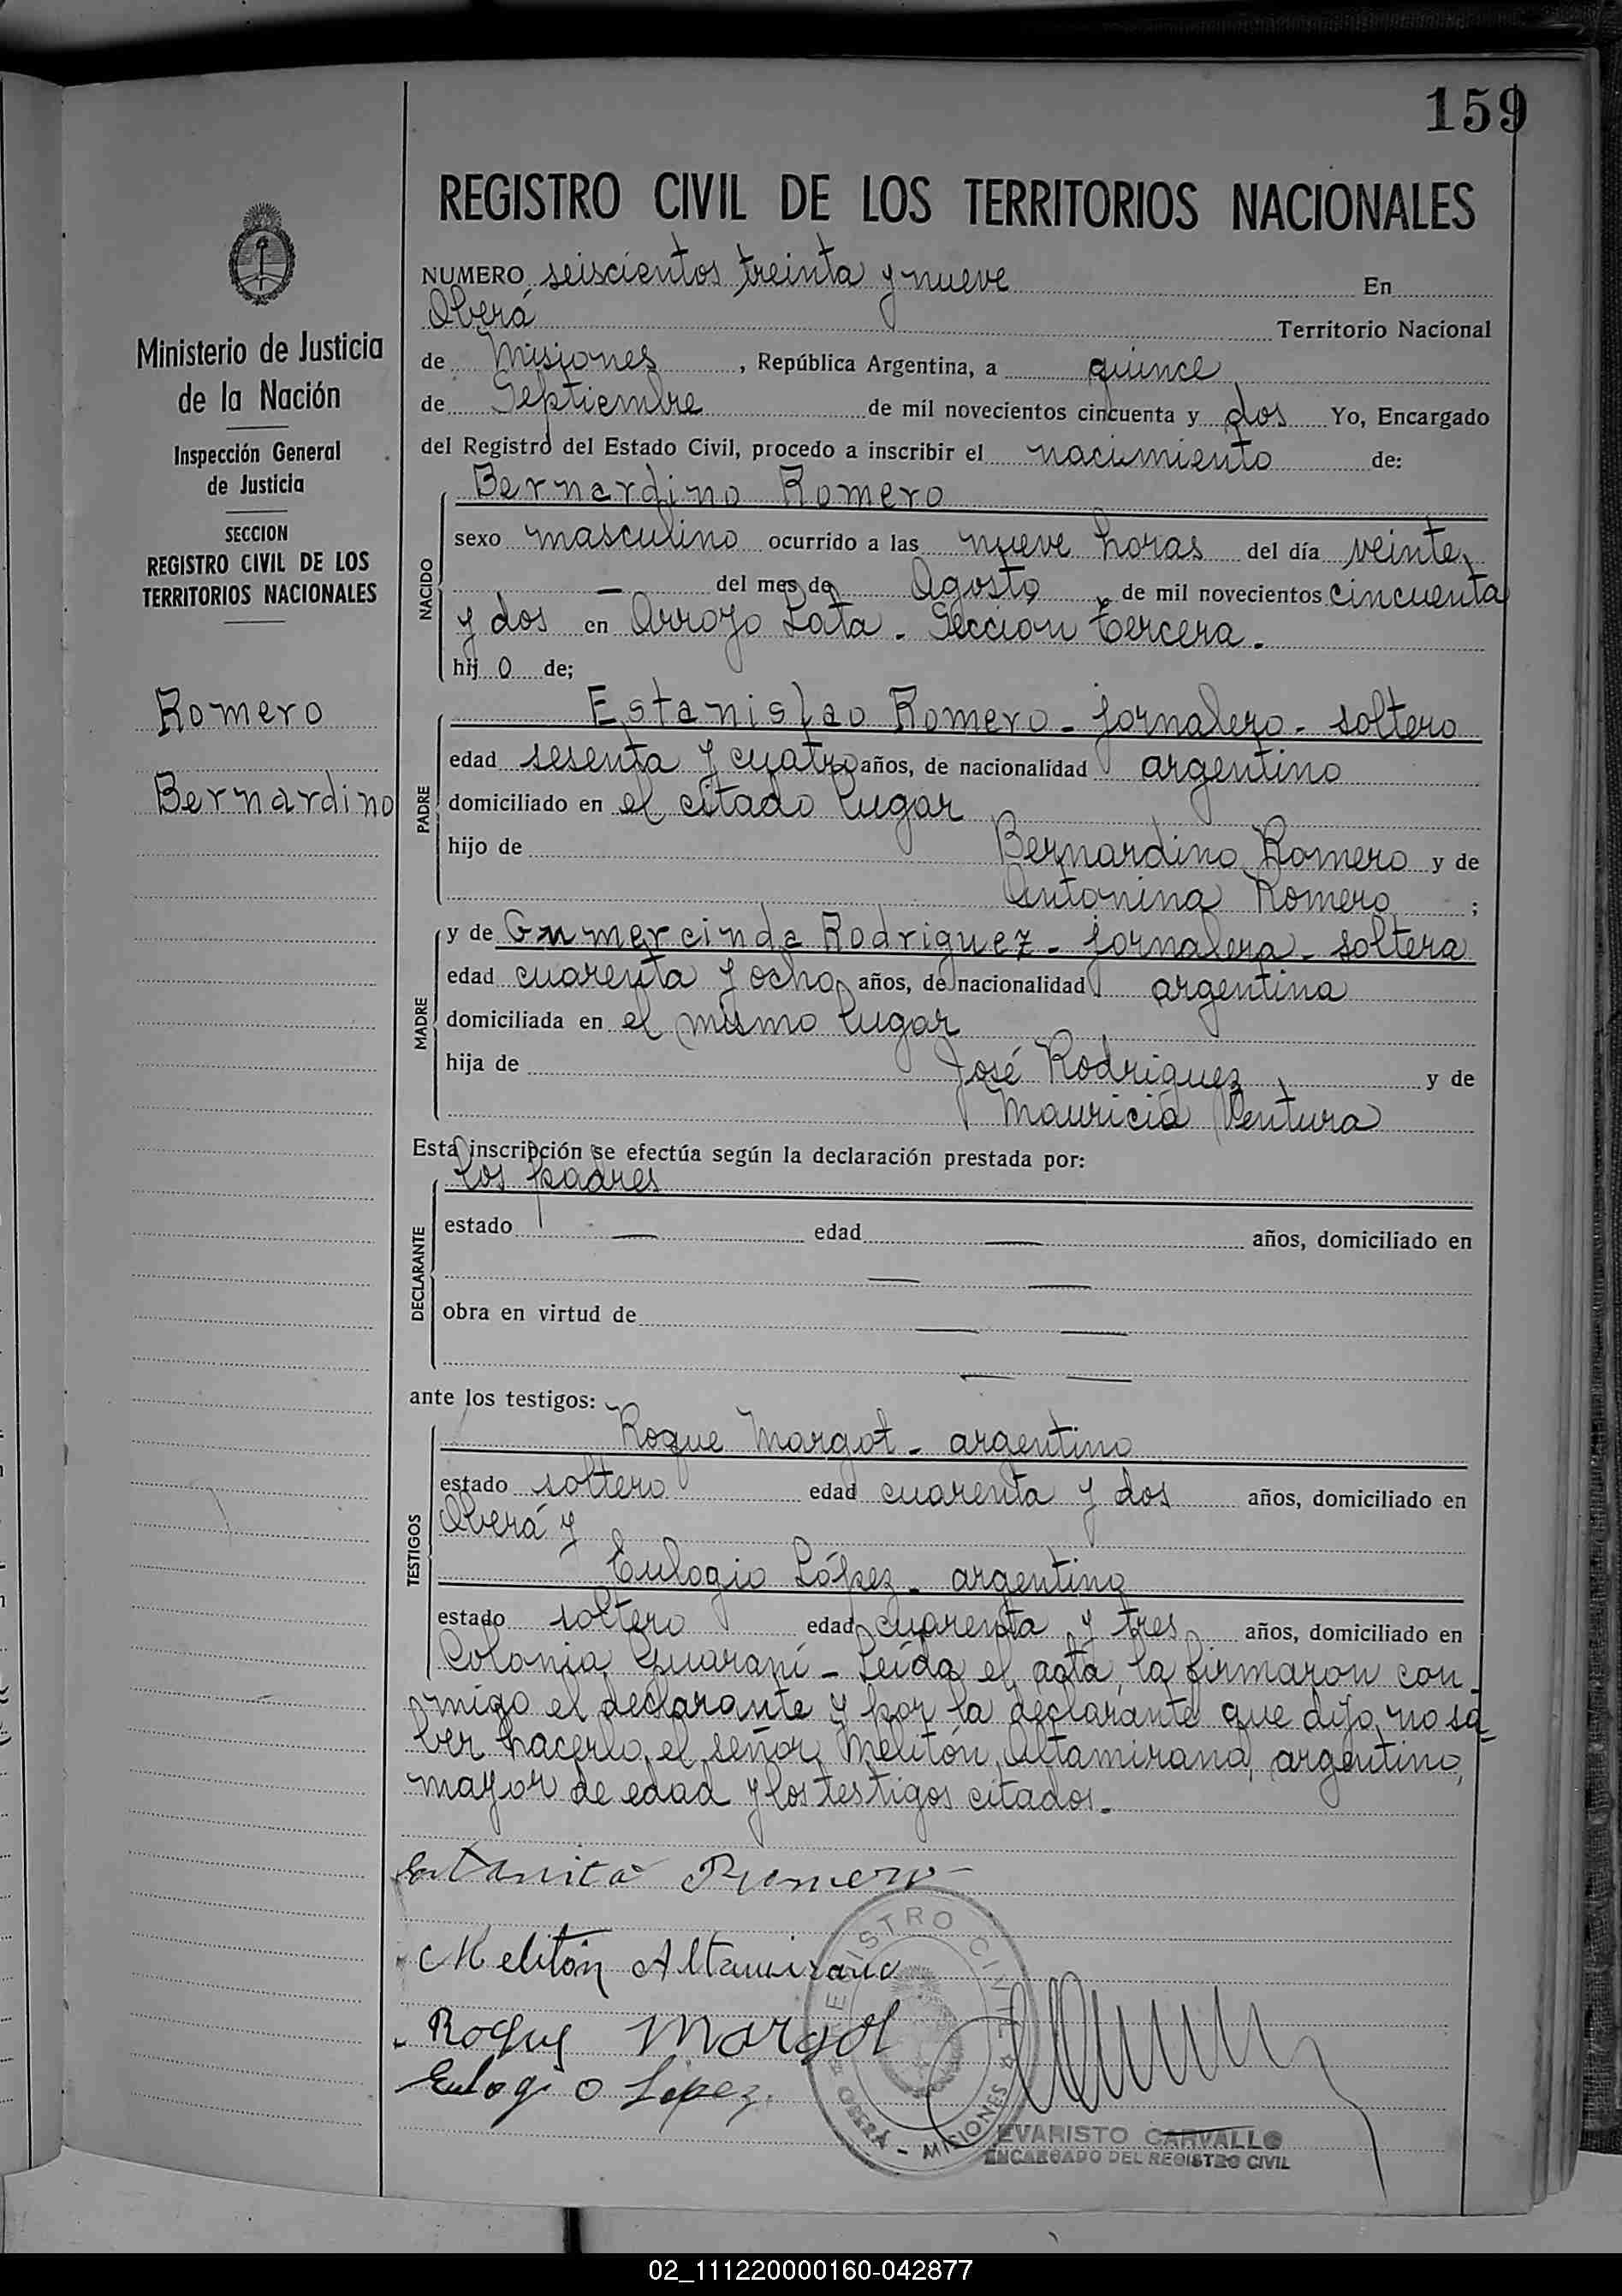 159
REGISTRO CIVIL DE LOS TERRITORIOS NACIONALES
Ministerio de Justicia
de la Nación
Inspección General
de Justicia
SECCION
REGISTRO CIVIL DE LOS
TERRITORIOS NACIONALES
Romero
Bernardino
NUMERO seiscientos treinta y nueve En
Oberá Territorio Nacional
de Misiones, República Argentina, a quince
de Septiembre de mil novecientos cincuenta y dos Yo, Encargado
del Registro del Estado Civil, procedo a inscribir el nacimiento de:
NACIDO
Bernardino Romero
sexo masculino ocurrido a las nueve horas del día veinte
— del mes de Agosto de mil novecientos cincuenta
y dos en Arroyo Lata - Sección tercera.
hij o de;
PADRE
Estanislao Romero - jornalero - soltero
edad sesenta y cuatro años, de nacionalidad argentino
domiciliado en el citado lugar
hijo de Bernardino Romero y de
Antonina Romero ;
MADRE
y de Gumercinda Rodriguez - jornalera - soltera
edad cuarenta y ocho años, de nacionalidad argentina
domiciliada en el mismo lugar
hija de José Rodriguez y de
Mauricia Ventura
Esta inscripción se efectúa según la declaración prestada por:
DECLARANTE
los padres
estado — edad — años, domiciliado en
— —
obra en virtud de — —
— —
ante los testigos:
TESTIGOS
Roque Margot - argentino
estado soltero edad cuarenta y dos años, domiciliado en
Oberá y
Eulogio López - argentino
estado soltero edad cuarenta y tres años, domiciliado en
Colonia Guaraní - Leída el acta, la firmaron con-
migo el declarante y por la declarante que dijo no sa-
ber hacerlo, el señor Melitón Altamirano, argentino,
mayor de edad y los testigos citados.
Romero
Melitón Altamirano
Roque Margot
Eulogio López.
REGISTRO CIVIL
OBERA - MISIONES
EVARISTO CARVALLO
ENCARGADO DEL REGISTRO CIVIL
02_111220000160-042877